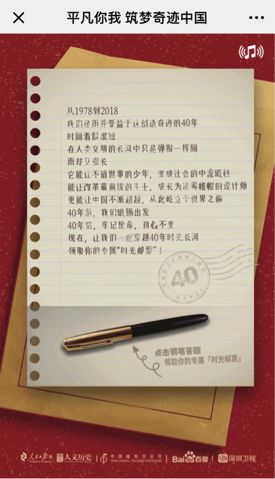 平凡你我 筑梦奇迹中国
从1978到2018
我们经历并受益于这创造奇迹的40年
时间看似漫长
在人类文明的长河中只是弹指一挥间
而却又很长
它能让不谙世事的少年，变成社会的中流砥柱
能让改革最前线的斗士，成长为运筹帷幄的设计师
更能让中国不断超越，从此屹立于世界之巅
40年前，我们砥砺出发
40年后，牢记使命，初心不变
现在，让我们一起穿越40年时光长河
领取你的专属“时光邮票”！
40
点击钢笔答题
领取你的专属「时光邮票」
人民日报 人文历史 Bai百度 深圳卫视